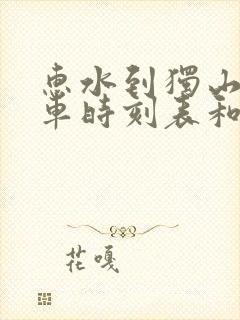 惠水到獨山
車時刻表和
花嘎